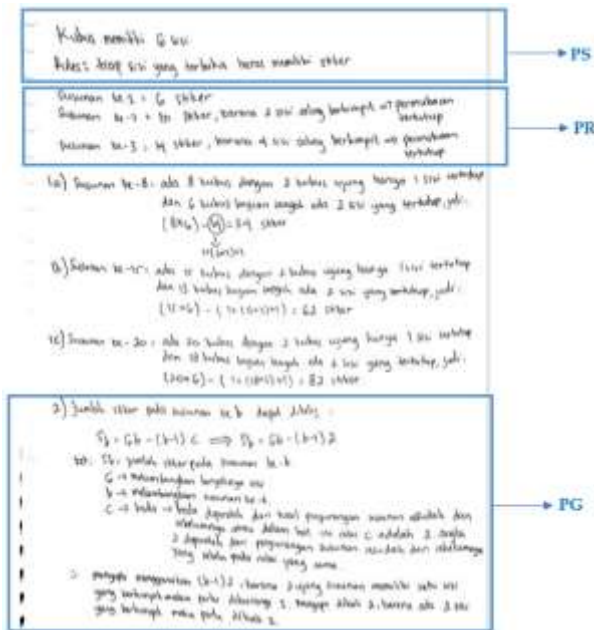 Kubus memiliki 6 sisi
Artes: tiap sisi yang terbuka harus memiliki stiker
PS
Susunan ke-1 = 6 stiker
Susunan ke-2 = 10 stiker, karena 2 sisi saling berhimpit → permukaan tertutup
PR
Susunan ke-3 = 14 stiker, karena 4 sisi saling berhimpit → permukaan tertutup
1a) Susunan ke-8 = ada 8 kubus dengan 2 kubus ujung hanya 1 sisi tertutup
dan 6 kubus bagian tengah ada 2 sisi yang tertutup, jadi:
(8×6) - 14 = 34 stiker
b) Susunan ke-15 = ada 15 kubus dengan 2 kubus ujung hanya 1 sisi tertutup
dan 13 kubus bagian tengah ada 2 sisi yang tertutup, jadi:
= 62 stiker
1c) Susunan ke-20 = ada 20 kubus dengan 2 kubus ujung hanya 1 sisi tertutup
dan 18 kubus bagian tengah ada 2 sisi yang tertutup, jadi:
= 82 stiker
2) Jumlah stiker pada susunan ke b dapat ditulis :
Sb = 6b - (b-1) c ⟹ Sb = 6b - (b-1) 2
ket: Sb = jumlah stiker pada susunan ke-b
6 → melambangkan banyaknya sisi
b → melambangkan susunan ke-b
c → beda → beda diperoleh dari hasil pengurangan susunan sesudah dan
sebelumnya dalam hal ini nilai c adalah 2. angka
2 diperoleh dari pengurangan susunan sesudah dan sebelumnya
yang selalu pada nilai yang sama.
PG
mengapa menggunakan (b-1) 2, karena 2 ujung susunan memiliki satu sisi
yang berhimpit maka perlu dikurangi 1, mengapa dikali 2, karena ada 2 sisi
yang berhimpit maka perlu dikali 2.